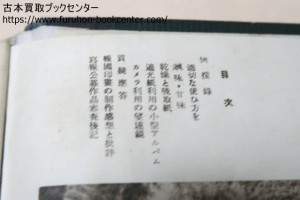 古本買取ブックセンター
http://www.furuhon-bookcenter.com/
目次
適切な使ひ方を
減味・甘味
乾燥と吸取紙
遮光紙利用の小型アルバム
カメラ利用の望遠鏡
質疑應答
報國印畫の制作感想と批評
寫報公募作品審査後記